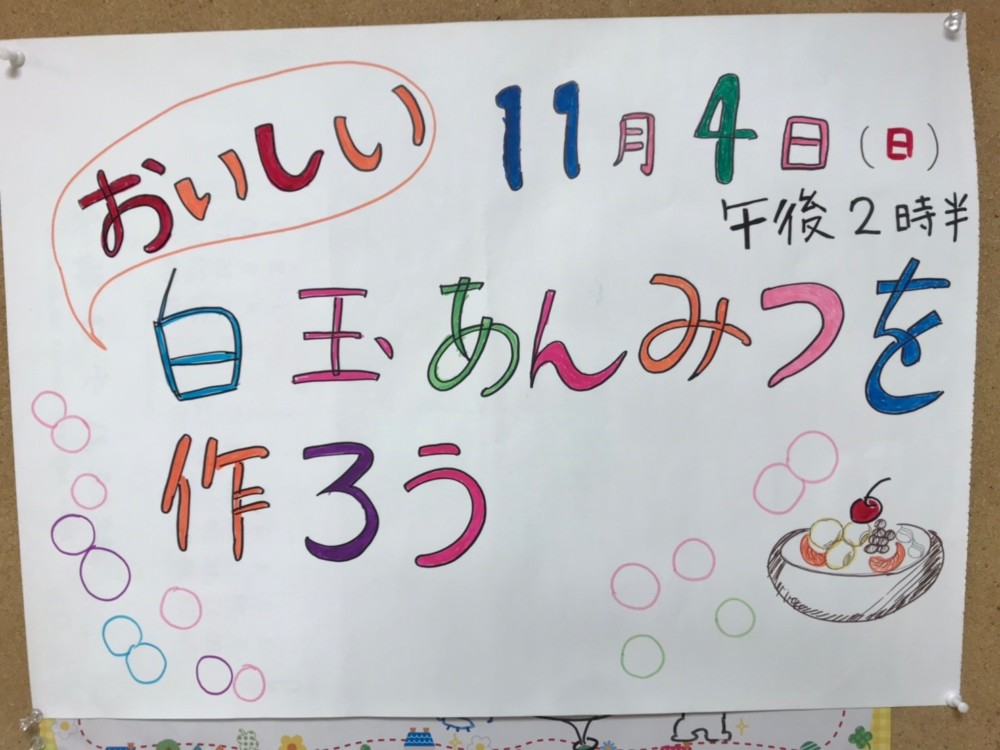 おいしい
11月4日(日)
午後2時半
白玉あんみつを
作ろう